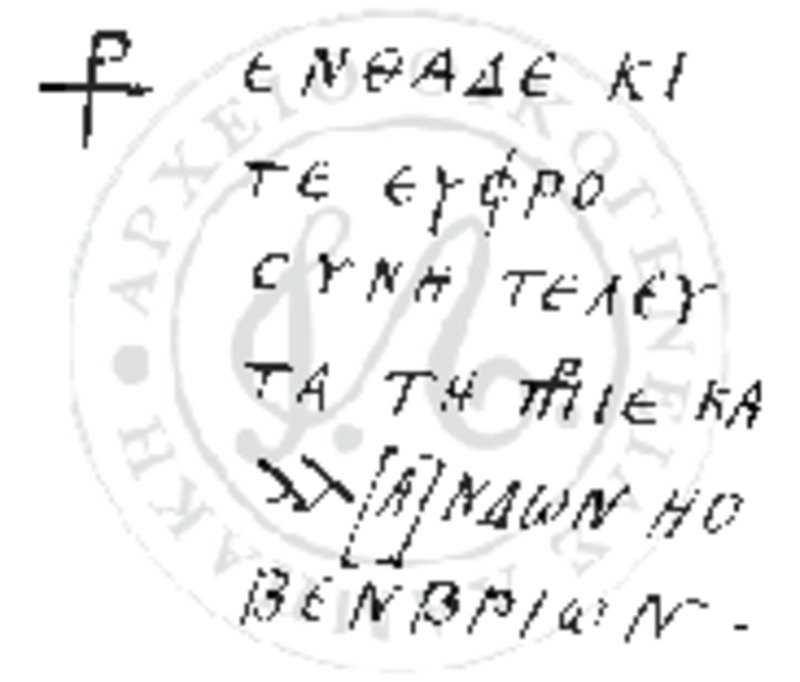 ⳨ ΕΝΘΑΔΕ ΚΙ
ΤΕ ΕΥΦΡΟ
CΥΝΗ ΤΕΛΕΥ
ΤΑ ΤΗ ΙΕ ΚΑ
[Α]ΝΔΩΝ ΗΟ
ΒΕΝΒΡΙΩΝ